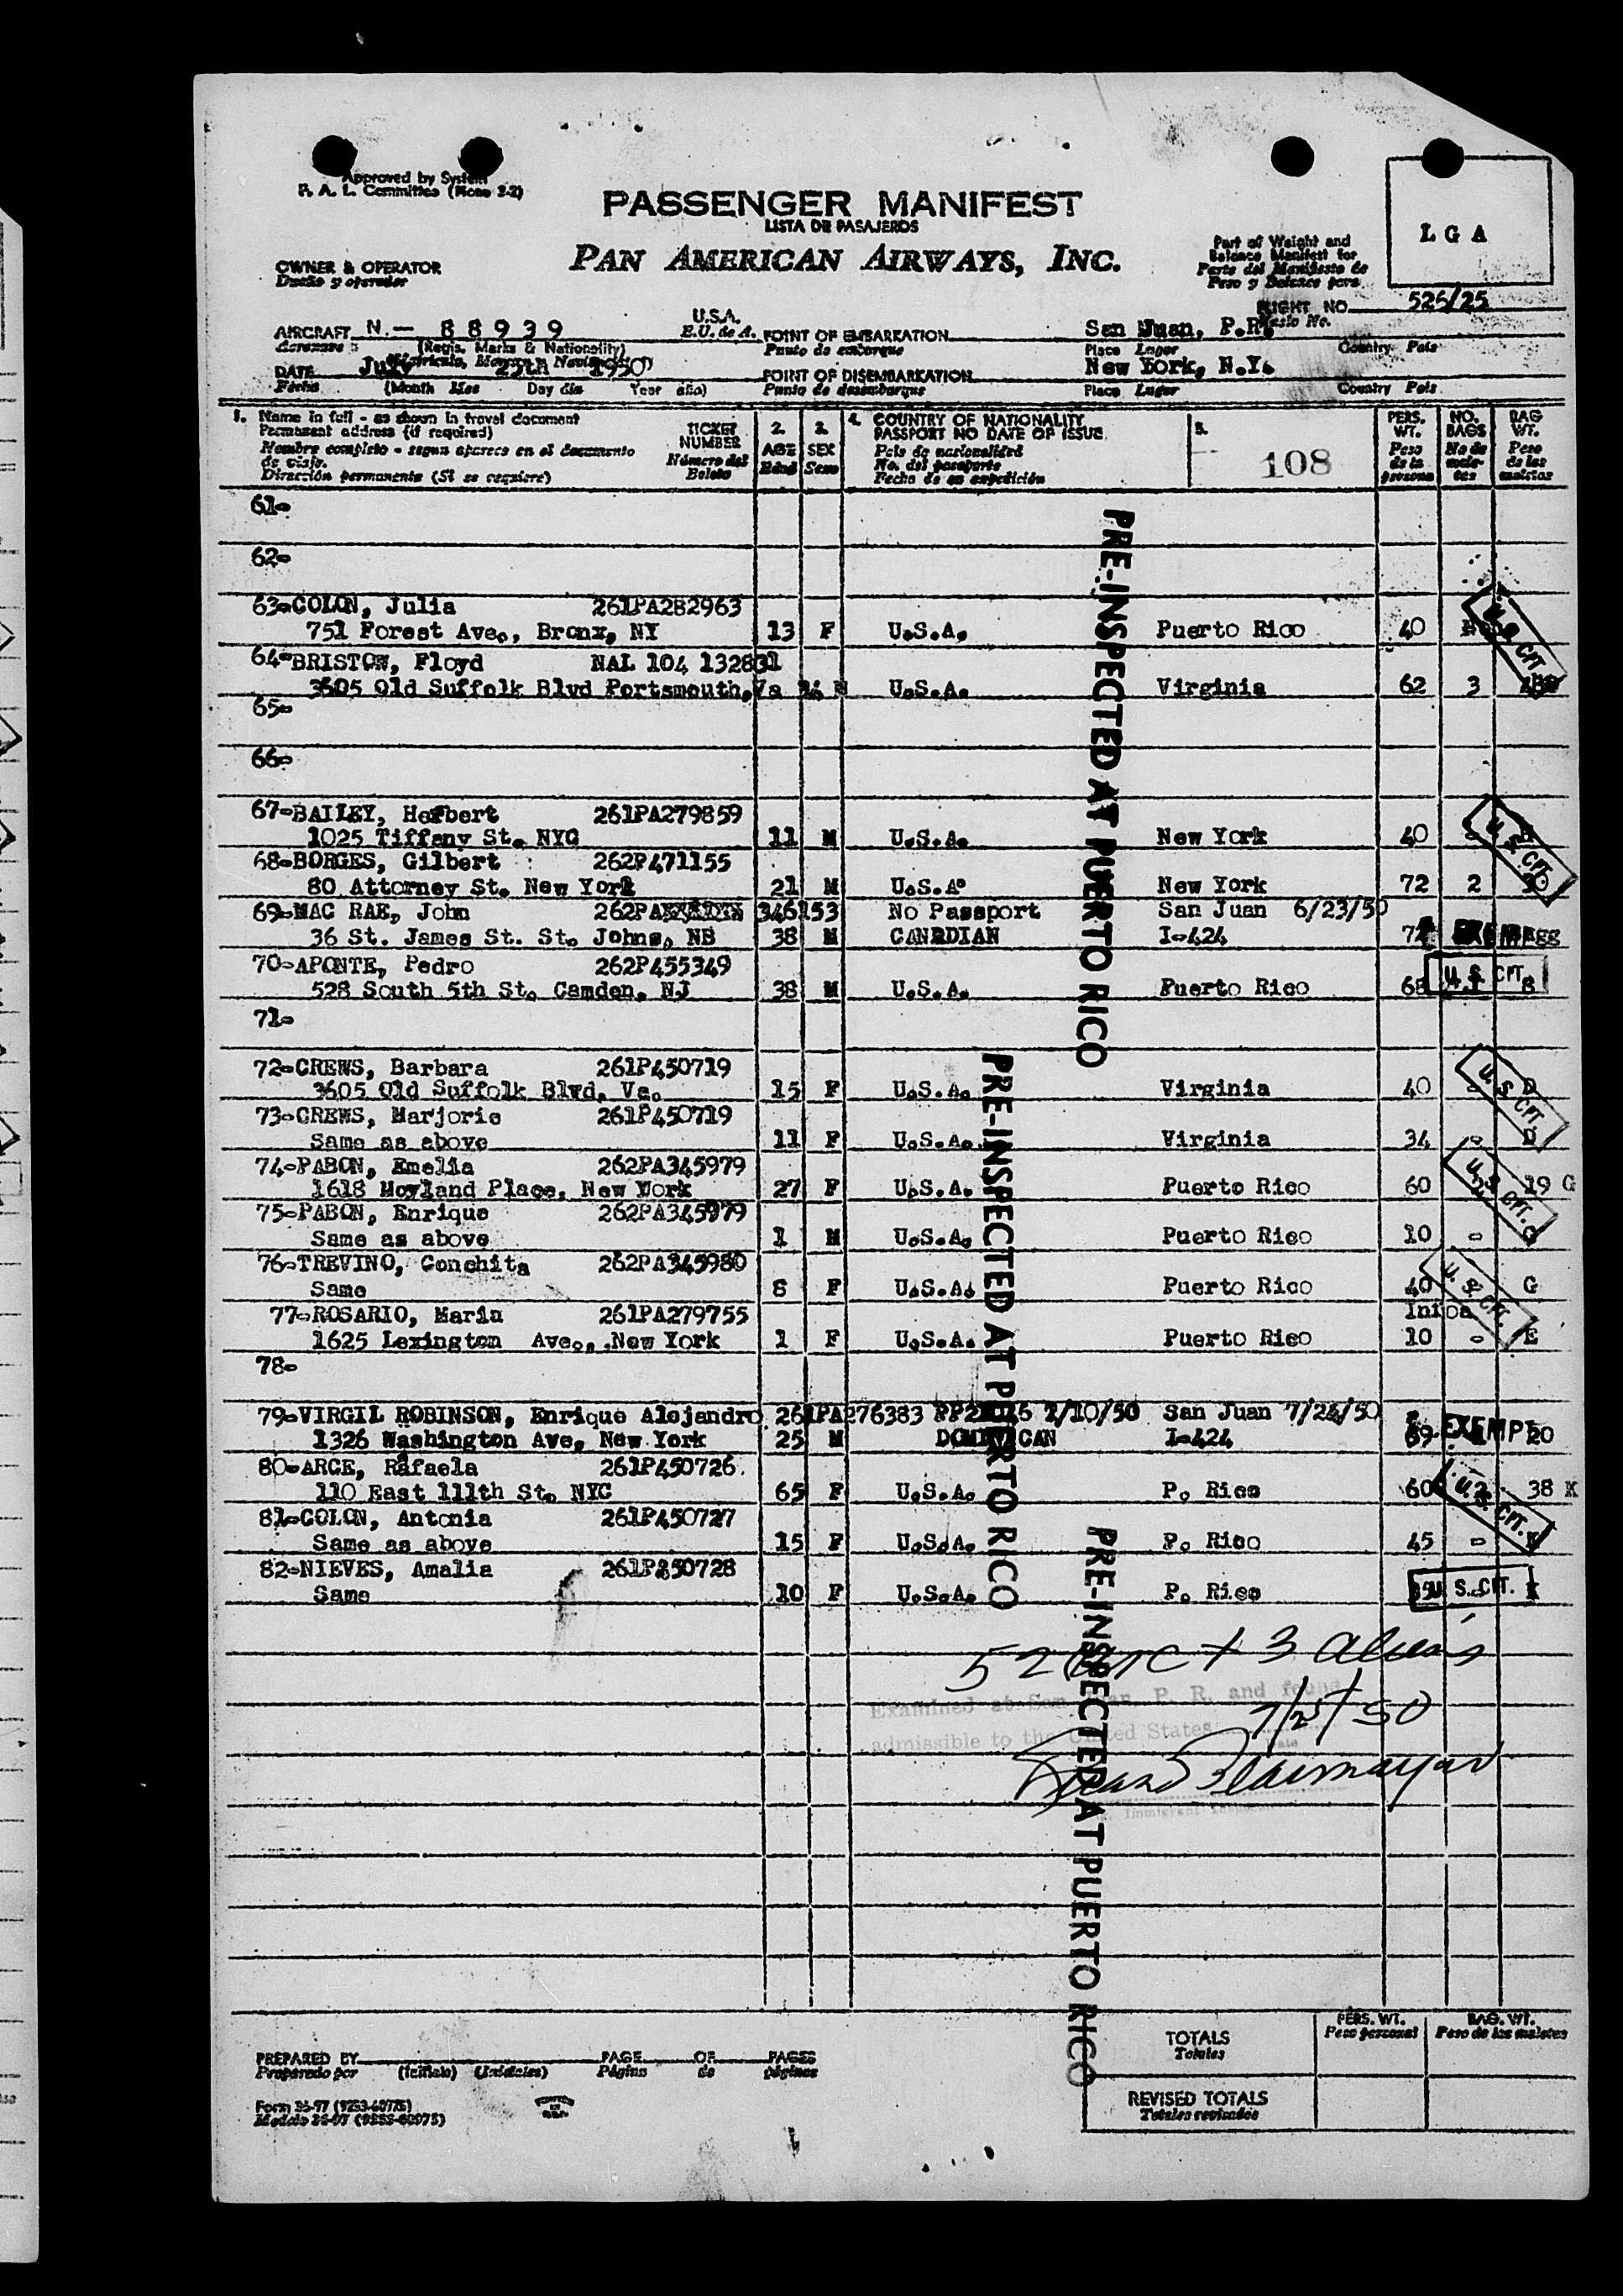 Approved by System
P. A. L. Committee (Mono 2-2)
PASSENGER MANIFEST
LISTA DE PASAJEROS
PAN AMERICAN AIRWAYS, INC.
Part of Weight and
Balance Manifest for
Parte del Manifiesto de
Peso y Balance para
L G A
OWNER & OPERATOR
Dueño y operador
FLIGHT NO. 526/25
Vuelo No.
AIRCRAFT N.- 88939
U.S.A.
E.U. de A.
(Regis. Marks & Nationality)
POINT OF EMBARKATION San Juan, P.R.
Punto de embarque
Place Lugar
Country Pais
DATE July 25th 1950
Fecha
(Month Mes Day dia Year año)
POINT OF DISEMBARKATION New York, N.Y.
Punto de desembarque
Place Lugar
Country Pais
1. Name in full - as shown in travel document
Permanent address (if required)
Nombre completo - segun aparece en el documento
de viaje.
Dirección permanente (Si se requiere)
TICKET
NUMBER
Número del
Boleto
2.
AGE
Edad
3.
SEX
Sexo
4. COUNTRY OF NATIONALITY
PASSPORT NO DATE OF ISSUE
Pais de nacionalidad
No. del pasaporte
Fecha de su expedición
5.
108
PERS.
WT.
Peso
de la
persona
NO.
BAGS
No de
male-
tas
BAG
WT.
Peso
de las
maletas
61-
62-
63-COLON, Julia 261PA282963
751 Forest Ave., Bronx, NY 13 F U.S.A. Puerto Rico 40
64-BRISTOW, Floyd NAL 104 132831
3605 Old Suffolk Blvd Portsmouth, Va U.S.A. Virginia 62 3
65-
66-
67-BAILEY, Herbert 261PA279859
1025 Tiffany St. NYC 11 M U.S.A. New York 40
68-BORGES, Gilbert 262P471155
80 Attorney St. New York 21 M U.S.A. New York 72 2
69-MAC RAE, John 262PA 346153 No Passport San Juan 6/23/50
36 St. James St. St. Johns, NB 38 M CANADIAN I-424
70-APONTE, Pedro 262P455349
528 South 5th St. Camden, NJ 38 M U.S.A. Puerto Rico 68 U.S. CIT.
71-
72-CREWS, Barbara 261P450719
3605 Old Suffolk Blvd, Va. 15 F U.S.A. Virginia 40 - D
73-CREWS, Marjorie 261P450719
Same as above 11 F U.S.A. Virginia 34 - D
74-PABON, Emelia 262PA345979
1618 Hoyland Place, New York 27 F U.S.A. Puerto Rico 60 19 G
75-PABON, Enrique 262PA345979
Same as above 1 M U.S.A. Puerto Rico 10 - G
76-TREVINO, Conchita 262PA345980
Same 8 F U.S.A. Puerto Rico 40 G
77-ROSARIO, Maria 261PA279755
1625 Lexington Ave., New York 1 F U.S.A. Puerto Rico 10 - E
78-
79-VIRGIL ROBINSON, Enrique Alejandro 261PA276383 San Juan 7/24/50
1326 Washington Ave, New York 25 M DOMINICAN I-424 69 EXEMPT 20
80-ARCE, Rafaela 261P450726
110 East 111th St. NYC 65 F U.S.A. P. Rico 60 38 K
81-COLON, Antonia 261P450727
Same as above 15 F U.S.A. P. Rico 45 - K
82-NIEVES, Amalia 261P450728
Same 10 F U.S.A. P. Rico U.S. CIT. K
U.S. CIT.
U.S. CIT.
U.S. CIT.
U.S. CIT.
U.S. CIT.
U.S. CIT.
PRE-INSPECTED AT PUERTO RICO
PRE-INSPECTED AT PUERTO RICO
PRE-INSPECTED AT PUERTO RICO
52 + 3 aliens
Examined at San Juan, P. R. and found
admissible to the United States
7/25/50
Date
Immigrant Inspector
TOTALS
Totales
PERS. WT.
Peso personal
BAG. WT.
Peso de las maletas
REVISED TOTALS
Totales revisados
PREPARED BY
Preparado por
(Initials) (Iniciales)
PAGE OF PAGES
Página de páginas